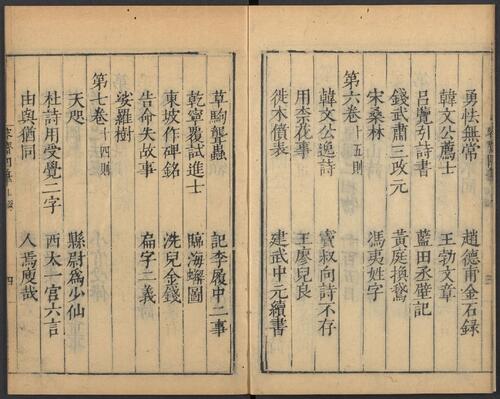 勇怯無常 趙德甫金石錄
韓文公薦士 王勃文章
呂覽引詩書 藍田丞壁記
錢武肅三改元 黃庭換鵞
宋桑林 馮夷姓字
第六卷 十五則
韓文公逸詩 竇叔向詩不存
用柰花事 王廖兒良
徙木僨表 建武中元續書
草駒聾蟲 記李履中二事
乾寧覆試進士 臨海蟹圖
東坡作碑銘 洗兒金錢
告命失故事 扁字二義
娑羅樹
第七卷 十四則
天咫 縣尉爲少仙
杜詩用受覺二字 西太一宮六言
由與猶同 人焉廋哉
四